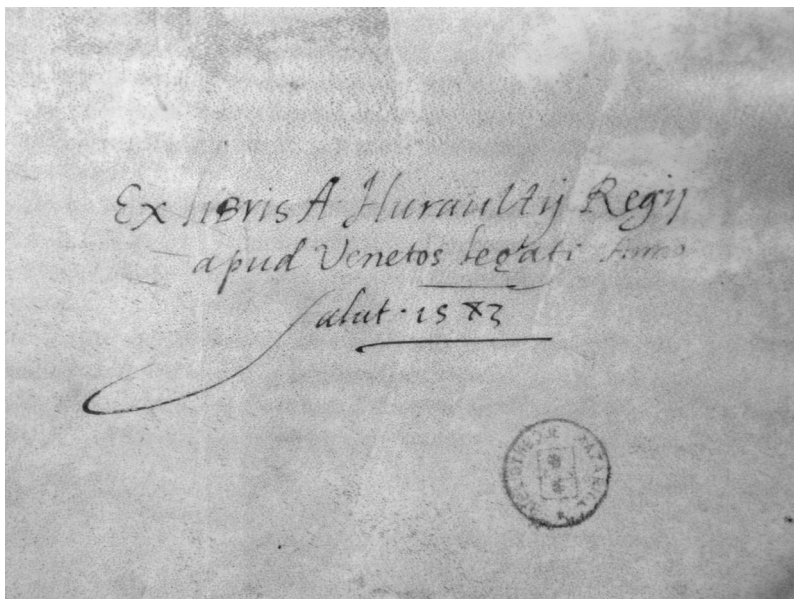 Ex libris A Huraultij Regij
apud Venetos legati Anno
Salut. 1583
BIBLIOTHEK